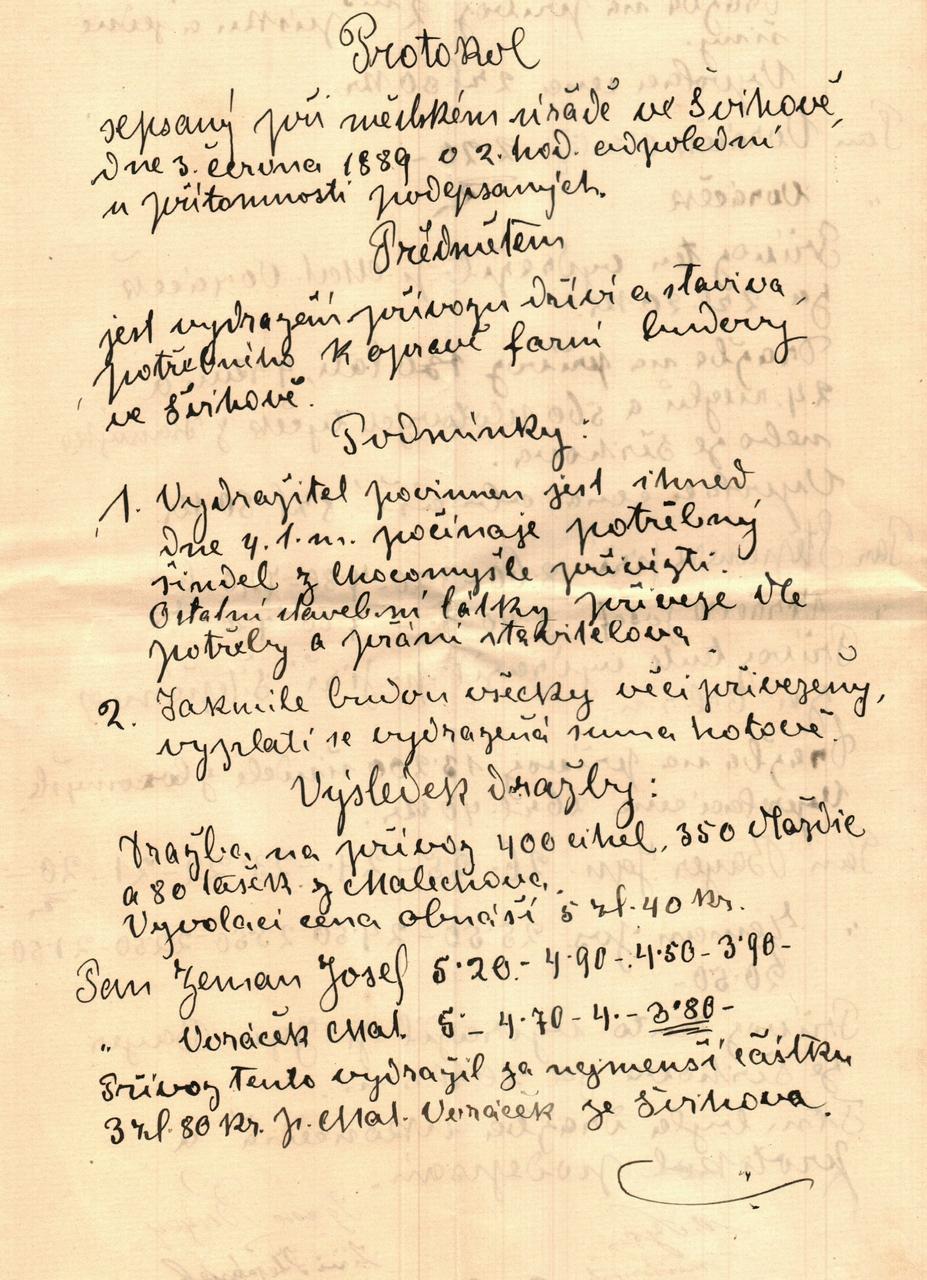 Protokol
sepsaný při městském úřadě ve Švihově,
dne 3. června 1889 o 2. hod. odpolední
u přítomnosti podepsaných.
Předmětem
jest vydražení přívozu dříví a staviva,
potřebního k opravě farní budovy
ve Švihově.
Podmínky:
1. Vydražitel povinnen jest ihned
dne 4. t. m. počínaje potřebný
šindel z Chocomyšle přivézti.
Ostatní stavební látky přiveze dle
potřeby a přání stavitelova
2. Jakmile budou všecky věci přivezeny,
vyplatí se vydražená suma hotově.
Výsledek dražby:
Dražba na přívoz 400 cihel, 350 dlaždic
a 80 tašek z Malechova.
Vyvolací cena obnáší 5 zl. 40 kr.
Pan Zeman Josef 5·20.- 4·90-. 4·50- 3·90-
„ Voráček Mat. 5·- 4·70- 4.- 3·80-
Přívoz tento vydražil za nejmenší částku
3 zl. 80 kr. p. Mat. Voráček ze Švihova.